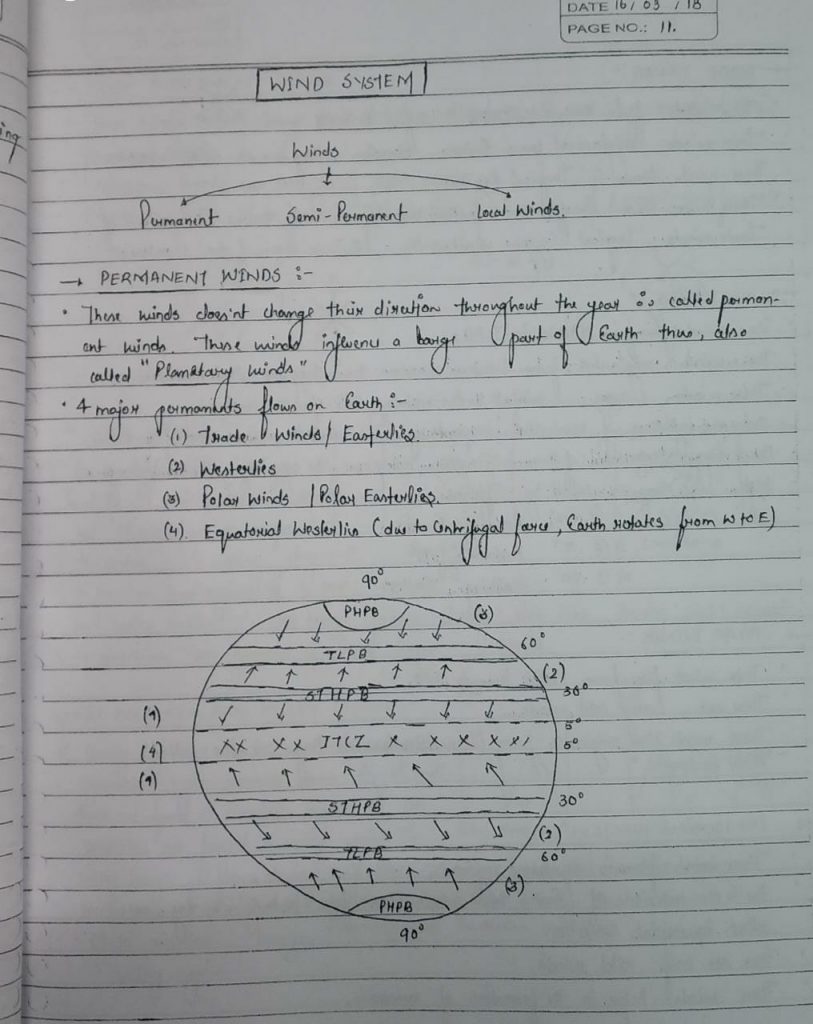 ing
DATE 16 / 03 / 18
PAGE NO.: 11.
WIND SYSTEM
Winds
Permanent Semi-Permanent Local Winds.
→ PERMANENT WINDS :-
• These winds doesn't change their direction throughout the year is called perman-
ent winds. These winds influence a large part of Earth thus, also
called "Planetary winds"
• 4 major permanents flows on Earth :-
(1) Trade Winds / Easterlies.
(2) Westerlies
(3) Polar Winds / Polar Easterlies.
(4). Equatorial Westerlies (due to Centrifugal force, Earth rotates from W to E)
90°
PHPB (3)
60°
TLPB
(2)
STHPB 30°
(1) 5°
(4) XX XX ITCZ X X X X X 5°
(1)
STHPB 30°
(2)
TLPB 60°
(3).
PHPB
90°